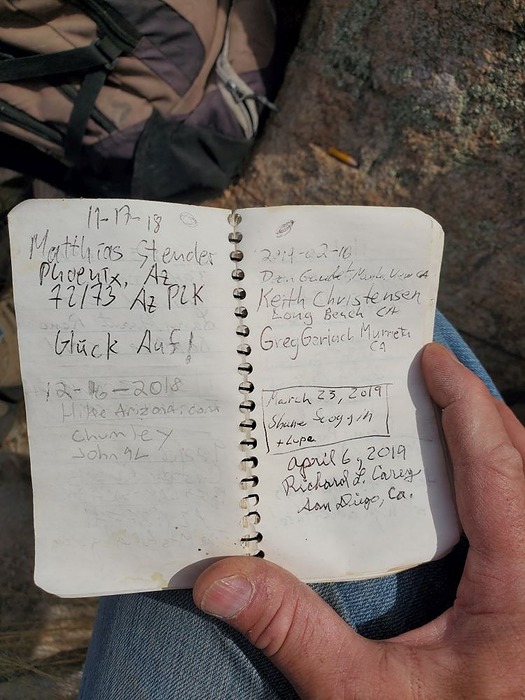 11-17-18
Matthias Stender
Phoenix, Az
72/73 Az P2K
Glück Auf!
12-16-2018
Hike Arizona.com
chumley
John9L
2019-02-16
CA
Keith Christensen
Long Beach CA
Greg Gerlach Murrieta
CA
March 23, 2019
Shane Scoggin
+ Lupe
april 6, 2019
Richard L. Carey
San Diego, Ca.